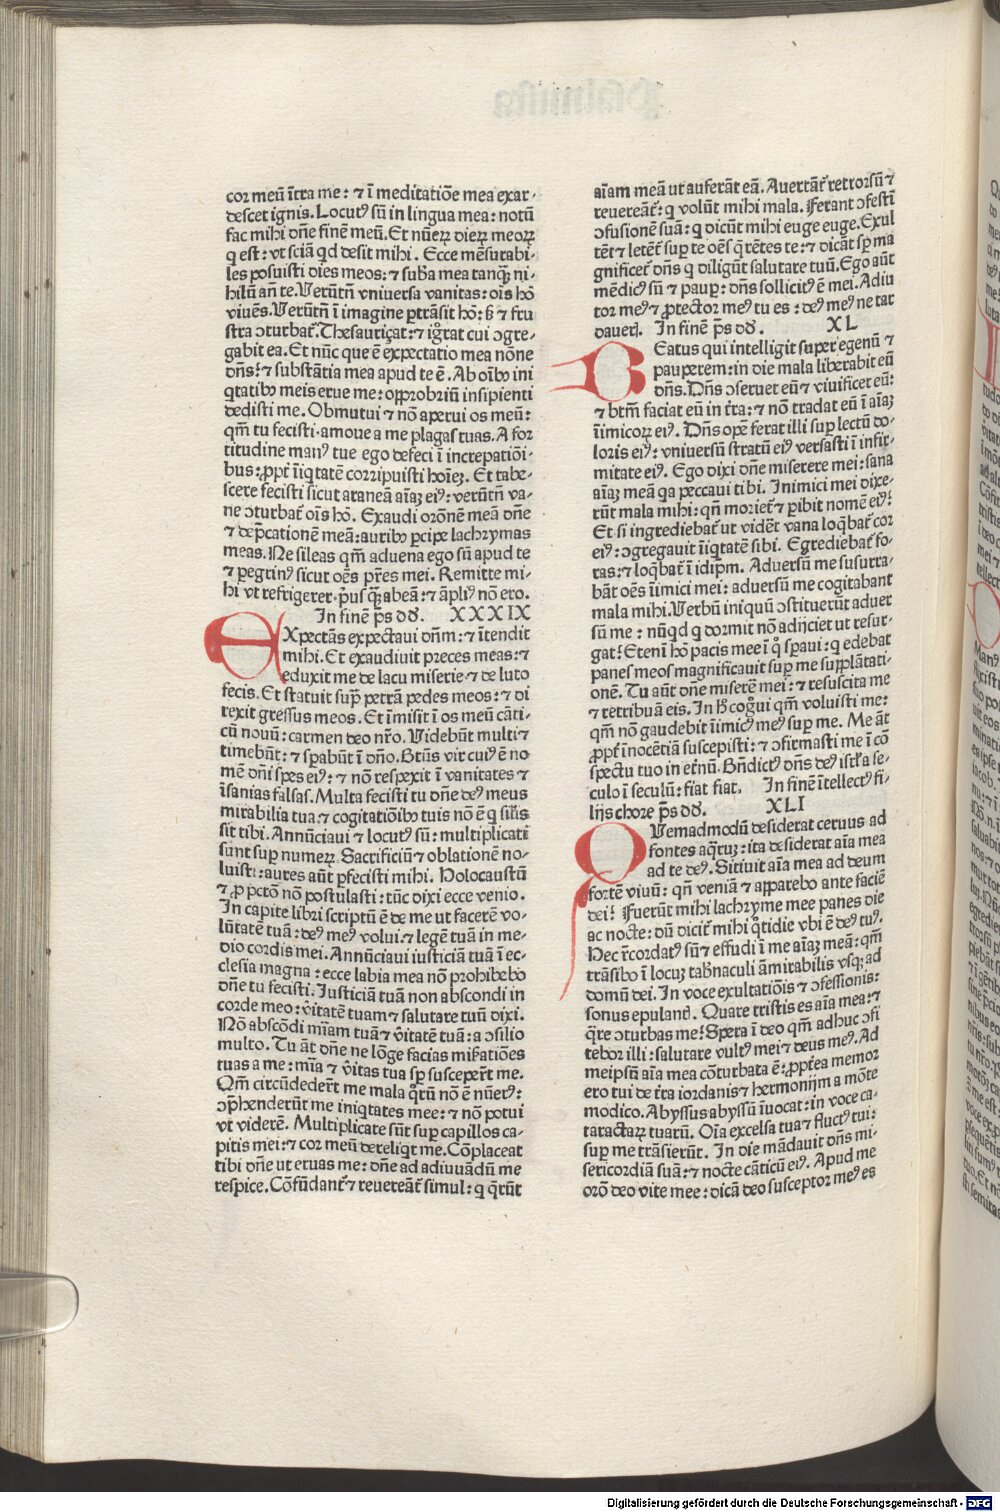 cor meū ītra me: ⁊ ī meditatiōe mea exar-
descet ignis. Locutꝰ sū in lingua mea: notū
fac mihi dn̄e finē meū. Et nūeꝝ dieꝝ meoꝝ
q est: vt sciā qd desit mihi. Ecce mēsurabi-
les posuisti dies meos: ⁊ suba mea tanqꝫ ni-
hilū an̄ te. Verūtn̄ vniuersa vanitas: ois hō
viuēs. Verūtn̄ ī imagine ptrāsit hō: ß ⁊ fru
stra ɔturbat̄. Thesauriçat: ⁊ igrat cui ɔgre-
gabit ea. Et nūc que ē expectatio mea nōne
dn̄s: ⁊ substātia mea apud te ē. Ab oībꝰ ini
qtatibꝰ meis erue me: opprobriū insipienti
dedisti me. Obmutui ⁊ nō aperui os meū:
qm̄ tu fecisti. amoue a me plagas tuas. A for
titudine manꝰ tue ego defeci ī increpatiōi-
bus: ꝓpt̄ īiqtatē corripuisti hoīeꝫ. Et tabe-
scere fecisti sicut araneā aīaꝫ eiꝰ: verūtn̄ va-
ne ɔturbat̄ ois hō. Exaudi orōnē meā dn̄e
⁊ dep̄cationē meā: auribꝰ pcipe lachrymas
meas. Ne sileas qm̄ aduena ego sū apud te
⁊ pegrinꝰ sicut oēs pr̄es mei. Remitte mi-
hi vt refrigerer. p̄us qꝫ abeā: ⁊ āpliꝰ nō ero.
In finē p̄s dd. XXXIX
EXpectās expectaui dn̄m: ⁊ ītendit
mihi. Et exaudiuit preces meas: ⁊
eduxit me de lacu miserie ⁊ de luto
fecis. Et statuit sup̄ petrā pedes meos: ⁊ di
rexit gressus meos. Et īmisit ī os meū cāti-
cū nouū: carmen deo nr̄o. Videbūt multi ⁊
timebūt: ⁊ sꝑabūt ī dn̄o. Btūs vir cuiꝰ ē no
mē dn̄i spes eiꝰ: ⁊ nō respexit ī vanitates ⁊
īsanias falsas. Multa fecisti tu dn̄e deꝰ meus
mirabilia tua: ⁊ cogitatiōibꝰ tuis nō ē q silis
sit tibi. Annūciaui ⁊ locutꝰ sū: multiplicati
sunt suꝑ numeꝝ. Sacrificiū ⁊ oblationē no-
luisti: aures aūt ꝑfecisti mihi. Holocaustū
⁊ ꝓ pctō nō postulasti: tūc dixi ecce venio.
In capite libri scriptū ē de me ut facerē vo-
lūtatē tuā: deꝰ meꝰ volui. ⁊ legē tuā in me-
dio cordis mei. Annūciaui iusticiā tuā ī ec-
clesia magna: ecce labia mea nō prohibebo
dn̄e tu fecisti. Iusticiā tuā non abscondi in
corde meo: v̄itatē tuam ⁊ salutare tuū dixi.
Nō abscōdi mīam tuā ⁊ v̄itatē tuā: a ɔsilio
multo. Tu āt dn̄e ne lōge facias misatiōes
tuas a me: mīa ⁊ v̄itas tua sꝑ suscepert̄ me.
Qm̄ circūdedert̄ me mala qrū nō ē nūerꝰ:
ɔp̄henderūt me iniqtates mee: ⁊ nō potui
vt viderē. Multiplicate sūt suꝑ capillos ca-
pitis mei: ⁊ cor meū dereliqt me. Cōplaceat
tibi dn̄e ut eruas me: dn̄e ad adiuuādū me
respice. Cōfūdant̄ ⁊ reuereāt̄ simul: q qrūt
aīam meā ut auferāt eā. Auertāt̄ retrorsū ⁊
reuereāt̄: q volūt mihi mala. Ferant ɔfestī
ɔfusionē suā: q dicūt mihi euge euge. Exul
tēt ⁊ letēt̄ suꝑ te oēs q̄rētes te: ⁊ dicāt sꝑ ma
gnificet̄ dn̄s q diligūt salutare tuū. Ego aūt
mēdicꝰ sū ⁊ pauꝑ: dn̄s sollicitꝰ ē mei. Adiu
tor meꝰ ⁊ ꝓtector meꝰ tu es: deꝰ meꝰ ne tar
daueꝝ. In finē p̄s dd. XL
BEatus qui intelligit super egenū ⁊
pauperem: in die mala liberabit eū
dn̄s. Dn̄s ɔseruet eū ⁊ viuificet eū:
⁊ btm̄ faciat eū in t̄ra: ⁊ nō tradat eū ī aīaꝫ
īimicoꝝ eiꝰ. Dn̄s opē ferat illi suꝑ lectū do-
loris eiꝰ: vniuersū stratū eiꝰ versasti ī infir-
mitate eiꝰ. Ego dixi dn̄e miserere mei: sana
aīaꝫ meā qa peccaui tibi. Inimici mei dixe-
rūt mala mihi: qn̄ moriet̄ ⁊ ꝑibit nomē eiꝰ:
Et si ingrediebat̄ ut vidēt vana loqbat̄ cor
eiꝰ: ɔgregauit īiqtatē sibi. Egrediebat̄ fo-
ras: ⁊ loqbat̄ ī idip̄m. Aduersū me susurra-
bāt oēs īimici mei: aduersū me cogitabant
mala mihi. Verbū iniquū ɔstituerūt aduer
sū me: nūqd q dormit nō adijciet ut resur-
gat: Eteni hō pacis mee ī q̊ sꝑaui: q edebat
panes meos magnificauit suꝑ me supplātati-
onē. Tu aūt dn̄e miserē mei: ⁊ resuscita me
⁊ retribuā eis. In hͦ cogui qm̄ voluisti me:
qm̄ nō gaudebit īimicꝰ meꝰ suꝑ me. Me āt
ꝓpt̄ inocētiā suscepisti: ⁊ ɔfirmasti me ī cō
spectu tuo in et̄nū. Bn̄dictꝰ dn̄s deꝰ isr̄a se-
culo ī seculū: fiat fiat. In finē ītellectꝰ fi-
lijs chore p̄s dd. XLI
QVemadmodū desiderat ceruus ad
fontes aq̄ruꝫ: ita desiderat aīa mea
ad te deꝰ. Sitiuit aīa mea ad deum
fortē viuū: qn̄ veniā ⁊ apparebo ante faciē
dei: Fuerūt mihi lachryme mee panes die
ac nocte: dū dicit̄ mihi q̊tidie vbi ē deꝰ tuꝰ.
Hec r̄cordatꝰ sū ⁊ effudi ī me aīaꝫ meā: qm̄
trāsibo ī locuꝫ tabn̄aculi āmirabilis vsqꝫ ad
domū dei. In voce exultatiōis ⁊ ɔfessionis:
sonus epulant̄. Quare tristis es aīa mea: ⁊
q̄re ɔturbas me: Spera ī deo qm̄ adhuc ɔfi
tebor illi: salutare vultꝰ mei ⁊ deus meꝰ. Ad
meipsū aīa mea cōturbata ē: ꝓpt̄ea memor
ero tui de t̄ra iordanis ⁊ hermonijm a mōte
modico. Abyssus abyssū īuocat: in voce ca-
taractaꝝ tuarū. Oīa excelsa tua ⁊ fluctꝰ tui:
suꝑ me trāsierūt. In die mādauit dn̄s mi-
sericordiā suā: ⁊ nocte cāticū eiꝰ. Apud me
orō deo vite mee: dicā deo susceptor meꝰ es
Digitalisierung gefördert durch die Deutsche Forschungsgemeinschaft - DFG